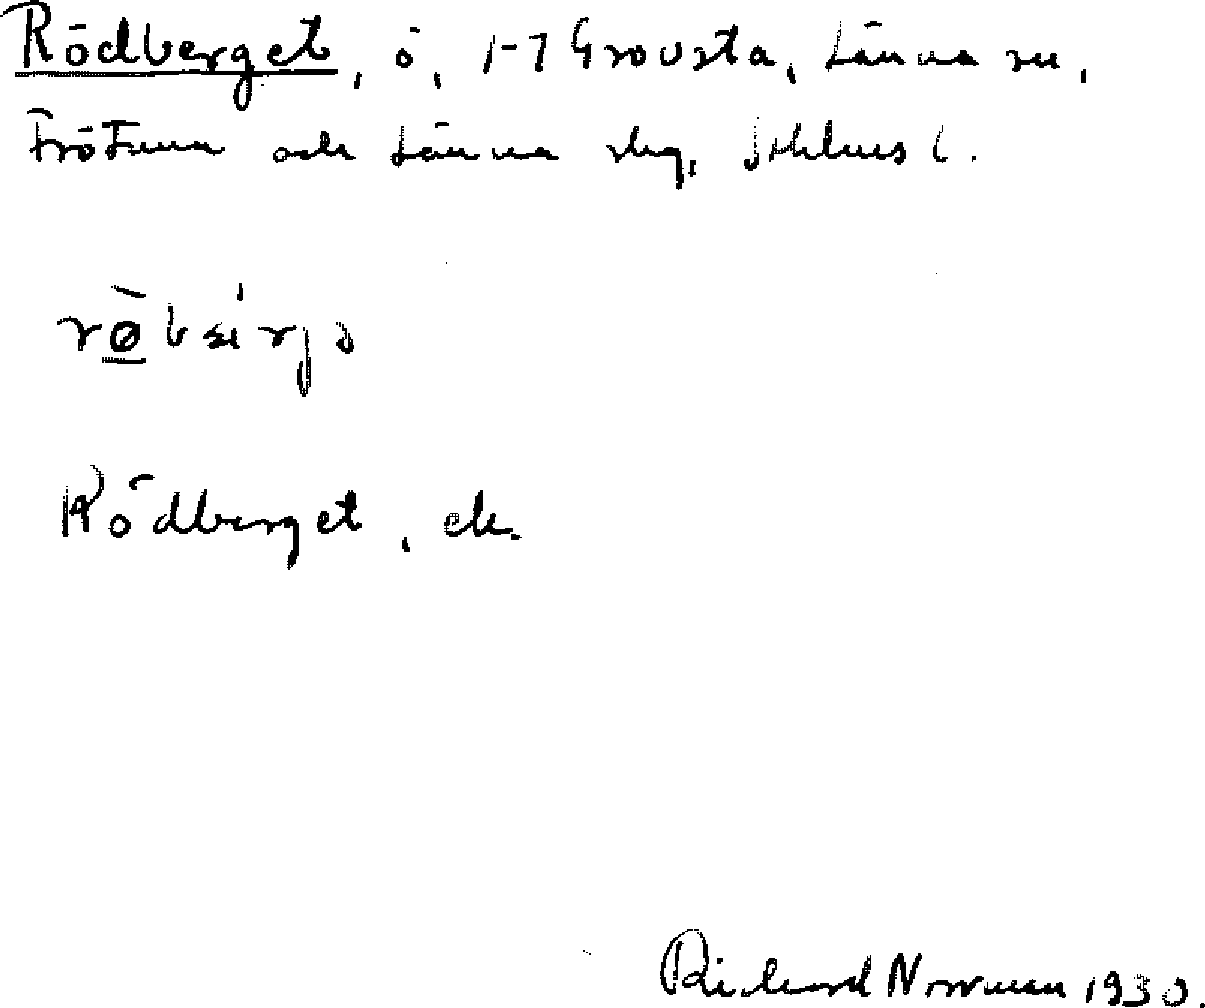 Rödberget, ö, 1-7 Grovsta, Länna sn,
Frötuna och Länna skg, Sthlms l.
Rödberget, ek.
Richard Norrman 1930.